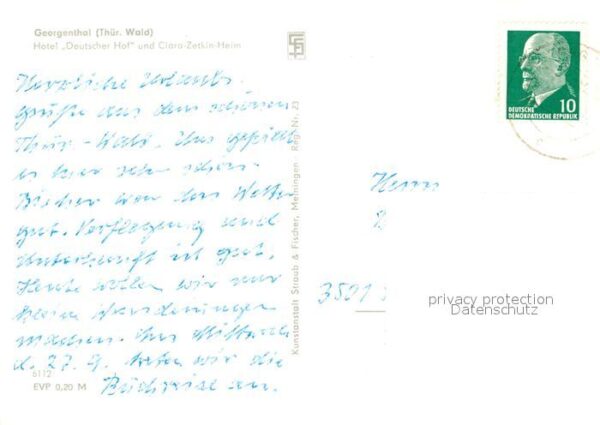 Georgenthal (Thür. Wald)
Hotel „Deutscher Hof" und Clara-Zetkin-Heim
Herzliche Urlaubs-
grüße aus dem schönen
Thür. Wald. Uns gefällt
es hier sehr schön.
Bisher war das Wetter
gut. Verpflegung und
Unterkunft ist gut.
Heute wollen wir nur
kleine Wanderungen
machen. Am Mittwoch
d. 27. 9. treten wir die
Rückreise an.
6112
EVP 0,20 M
Kunstanstalt Straub & Fischer, Meiningen · Reg.-Nr. 23
DEUTSCHE
DEMOKRATISCHE REPUBLIK
10
Herrn
3501
privacy protection
Datenschutz